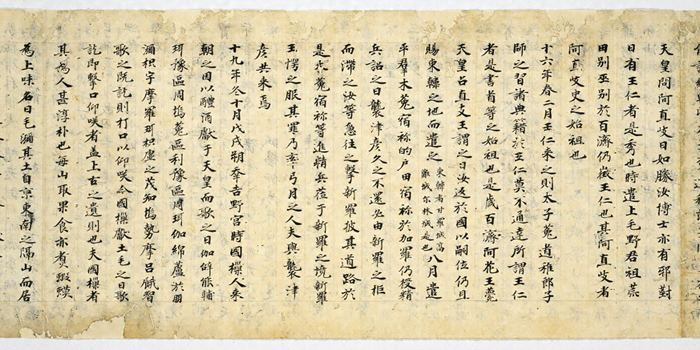 天皇問阿直岐曰如勝汝博士亦有耶對
曰有王仁者是秀也時遣上毛野君祖荒
田別巫別於百濟仍徴王仁也其阿直岐者
阿直岐史之始祖也
十六年春二月王仁来之則太子菟道稚郎子
師之習諸典籍於王仁莫不通達所謂王仁
者是書首等之始祖也是歳百濟阿花王薨
天皇召直支王謂之曰汝返於國以嗣位仍且
賜東韓之地而遣之東韓者甘羅城高難城尓林城是也八月遣
平群木菟宿祢的戸田宿祢於加羅仍授精
兵詔之曰襲津彦久之不還必由新羅之拒
而滞之汝等急往之撃新羅披其道路於
是木菟宿祢等進精兵莅于新羅之境新羅
王愕之服其罪乃率弓月之人夫與襲津
彦共来焉
十九年冬十月戊戌朔幸吉野宮時國樔人来
朝之因以醴酒獻于天皇而歌之曰伽辞能輔
珥豫區周塢菟區利豫區周珥伽綿蘆於朋
瀰枳宇摩羅珥枳虚之茂知塢勢摩呂餓智
歌之既訖則打口以仰咲今國樔獻土毛之日歌
訖即撃口仰咲者蓋上古之遺則也夫國樔者
其為人甚淳朴也毎山取菓食亦煮蝦蟆
為上味名曰毛瀰其土自京東南之隔山而居